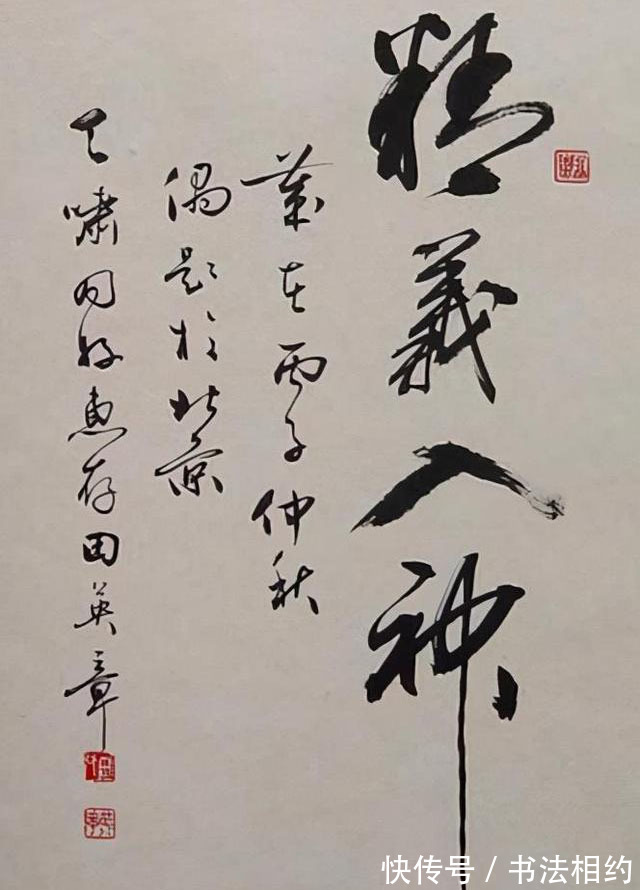 精義入神
歲在丙子仲秋
偶題於北京
嘯同好惠存田英章
快传号 / 书法相约